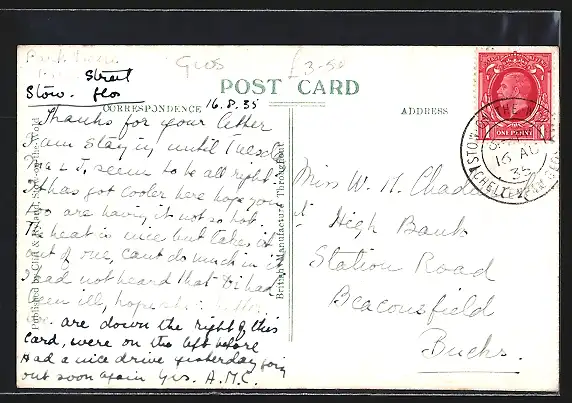 Glos
£3-50
Street
Stow. Glos
POST CARD
CORRESPONDENCE
16.8.35
ADDRESS
Thanks for your letter
I am staying until Tuesday
seem to be all right
It has got cooler here hope you
too are having it not so hot
The heat is nice but takes it
out of one, cant do much in it
I had not heard that Di had
been ill, hope
are down the right of this
card, were on the left before
Had a nice drive yesterday going
out soon again Yrs. A.M.C.
Published by
Stow-on-the-Wold
British Manufacture Throughout
Miss W. H.
High Bank
Station Road
Beaconsfield
Bucks.
ONE PENNY
STOW ON THE WOLD
16 AU
35
CHELTENHAM GLOS